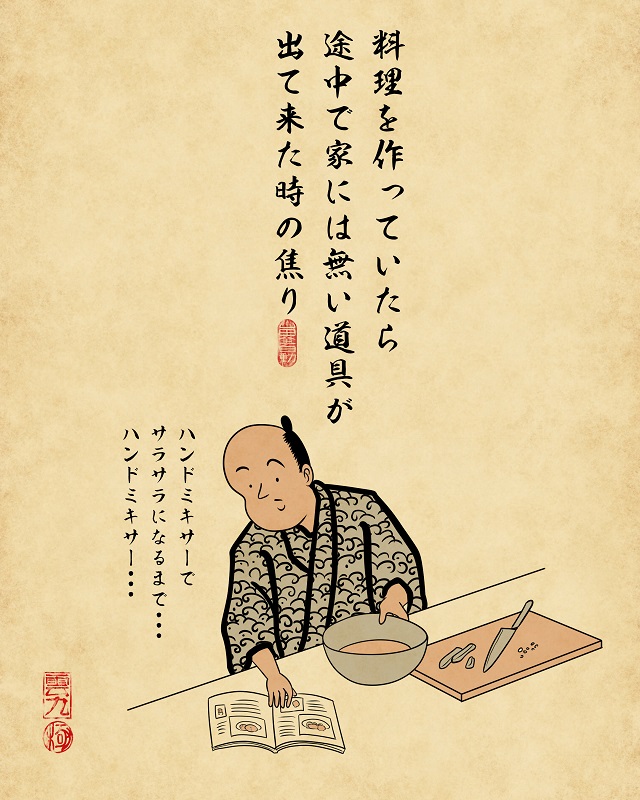 料理を作っていたら
途中で家には無い道具が
出て来た時の焦り
ハンドミキサーで
サラサラになるまで・・・
ハンドミキサー・・・